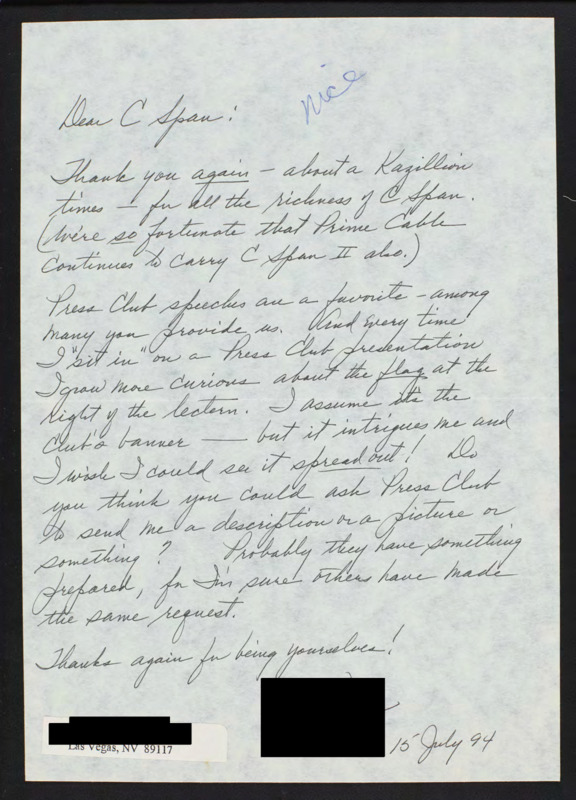 nice
Dear C Span:
Thank you again – about a Kazillion
times – for all the richness of C Span.
(We're so fortunate that Prime Cable
continues to carry C Span II also.)
Press Club speeches are a favorite – among
many you provide us. And every time
I "sit in" on a Press Club presentation
I grow more curious about the flag at the
right of the lectern. I assume it's the
Club's banner — but it intrigues me and
I wish I could see it spread out! Do
you think you could ask Press Club
to send me a description or a picture or
something? Probably they have something
prepared, for I'm sure others have made
the same request.
Thanks again for being yourselves!
Las Vegas, NV 89117
15 July 94